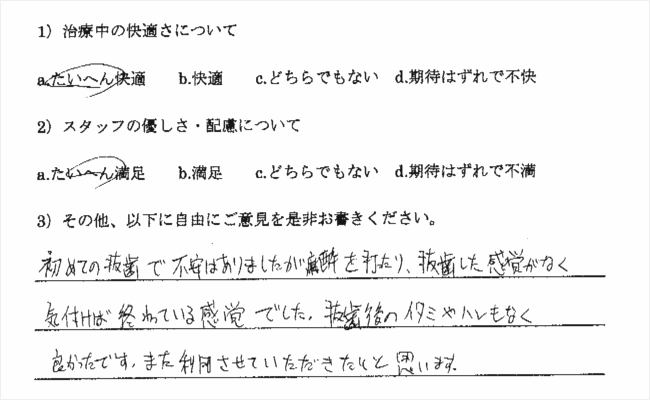 1）治療中の快適さについて
a.たいへん快適　b.快適　c.どちらでもない　d.期待はずれで不快
2）スタッフの優しさ・配慮について
a.たいへん満足　b.満足　c.どちらでもない　d.期待はずれで不満
3）その他、以下に自由にご意見を是非お書きください。
初めての抜歯で不安はありましたが麻酔を打たり、抜歯した感覚がなく
気付けば終わっている感覚でした。抜歯後のイタミやハレもなく
良かったです。また利用させていただきたいと思います。